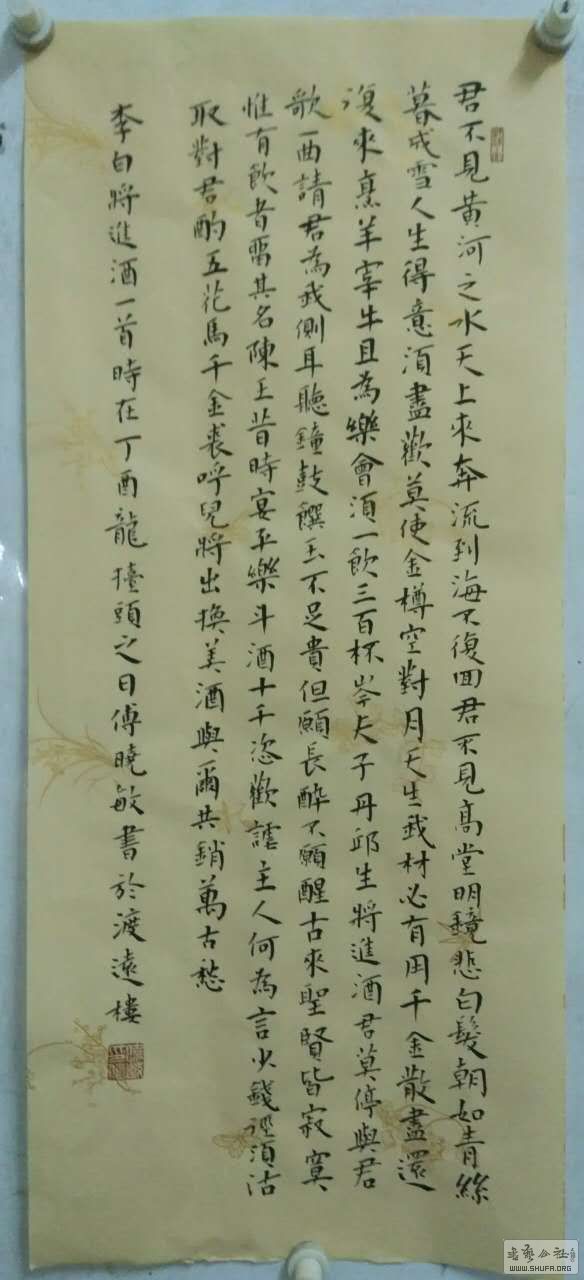 君不見黃河之水天上來奔流到海不復回君不見高堂明鏡悲白髮朝如青絲
暮成雪人生得意須盡歡莫使金樽空對月天生我材必有用千金散盡還
復來烹羊宰牛且為樂會須一飲三百杯岑夫子丹邱生將進酒君莫停與君
歌一曲請君為我側耳聽鐘鼓饌玉不足貴但願長醉不願醒古來聖賢皆寂寞
惟有飲者留其名陳王昔時宴平樂斗酒十千恣歡謔主人何為言少錢徑須沽
取對君酌五花馬千金裘呼兒將出換美酒與爾共銷萬古愁
李白將進酒一首時在丁酉龍擡頭之日傅曉敏書於渡遠樓
WWW.SHUFA.ORG